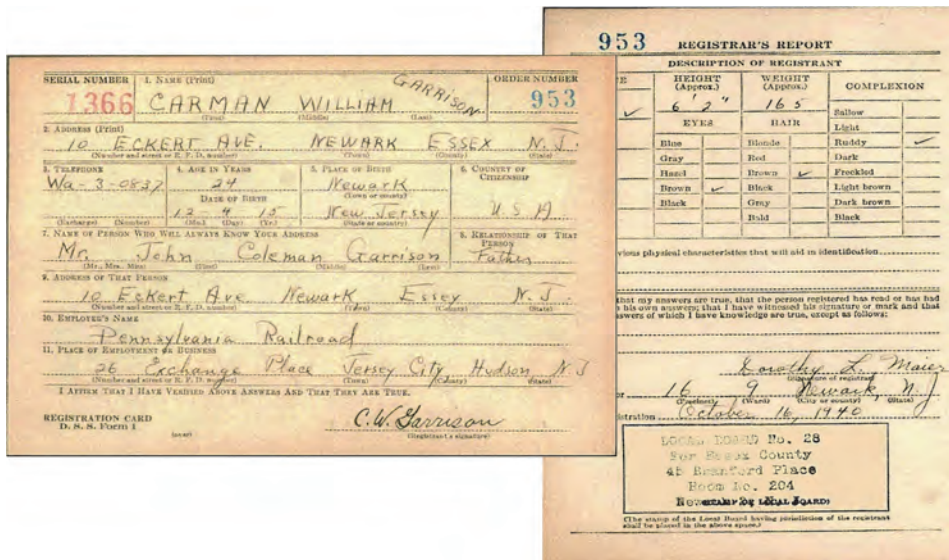 SERIAL NUMBER 1. NAME (Print) ORDER NUMBER
1366 CARMAN WILLIAM GARRISON 953
(First) (Middle) (Last)
2. ADDRESS (Print)
10 ECKERT AVE. NEWARK ESSEX N.J.
(Number and street or R. F. D. number) (Town) (County) (State)
3. TELEPHONE 4. AGE IN YEARS 5. PLACE OF BIRTH 6. COUNTRY OF CITIZENSHIP
Wa-3-0837 24 Newark
DATE OF BIRTH (Town or county)
12 4 15 New Jersey U.S.A
(Exchange) (Number) (Mo.) (Day) (Yr.) (State or country)
7. NAME OF PERSON WHO WILL ALWAYS KNOW YOUR ADDRESS 8. RELATIONSHIP OF THAT PERSON
Mr. John Coleman Garrison Father
(Mr., Mrs., Miss) (First) (Middle) (Last)
9. ADDRESS OF THAT PERSON
10 Eckert Ave Newark, Essex N.J.
(Number and street or R. F. D. number) (Town) (County) (State)
10. EMPLOYER'S NAME
Pennsylvania Railroad
11. PLACE OF EMPLOYMENT OR BUSINESS
26 Exchange Place Jersey City, Hudson, N.J
(Number and street or R. F. D. number) (Town) (County) (State)
I AFFIRM THAT I HAVE VERIFIED ABOVE ANSWERS AND THAT THEY ARE TRUE.
REGISTRATION CARD
D. S. S. Form 1 C.W. Garrison
(over) (Registrant's signature)
953 REGISTRAR'S REPORT
DESCRIPTION OF REGISTRANT
E HEIGHT (Approx.) WEIGHT (Approx.) COMPLEXION
6'2" 165
Sallow
EYES HAIR Light
Blue Blonde Ruddy
Gray Red Dark
Hazel Brown Freckled
Brown Black Light brown
Black Gray Dark brown
Bald Black
vious physical characteristics that will aid in identification
that my answers are true, that the person registered has read or has had
his own answers; that I have witnessed his signature or mark and that
swers of which I have knowledge are true, except as follows:
Dorothy L. Maier
(Signature of registrar)
or 16 9 Newark, N.J
(Precinct) (Ward) (City or county) (State)
istration October 16, 1940
LOCAL BOARD No. 28
for Essex County
45 Branford Place
Room No. 204
(STAMP OF LOCAL BOARD)
(The stamp of the Local Board having jurisdiction of the registrant
shall be placed in the above space.)